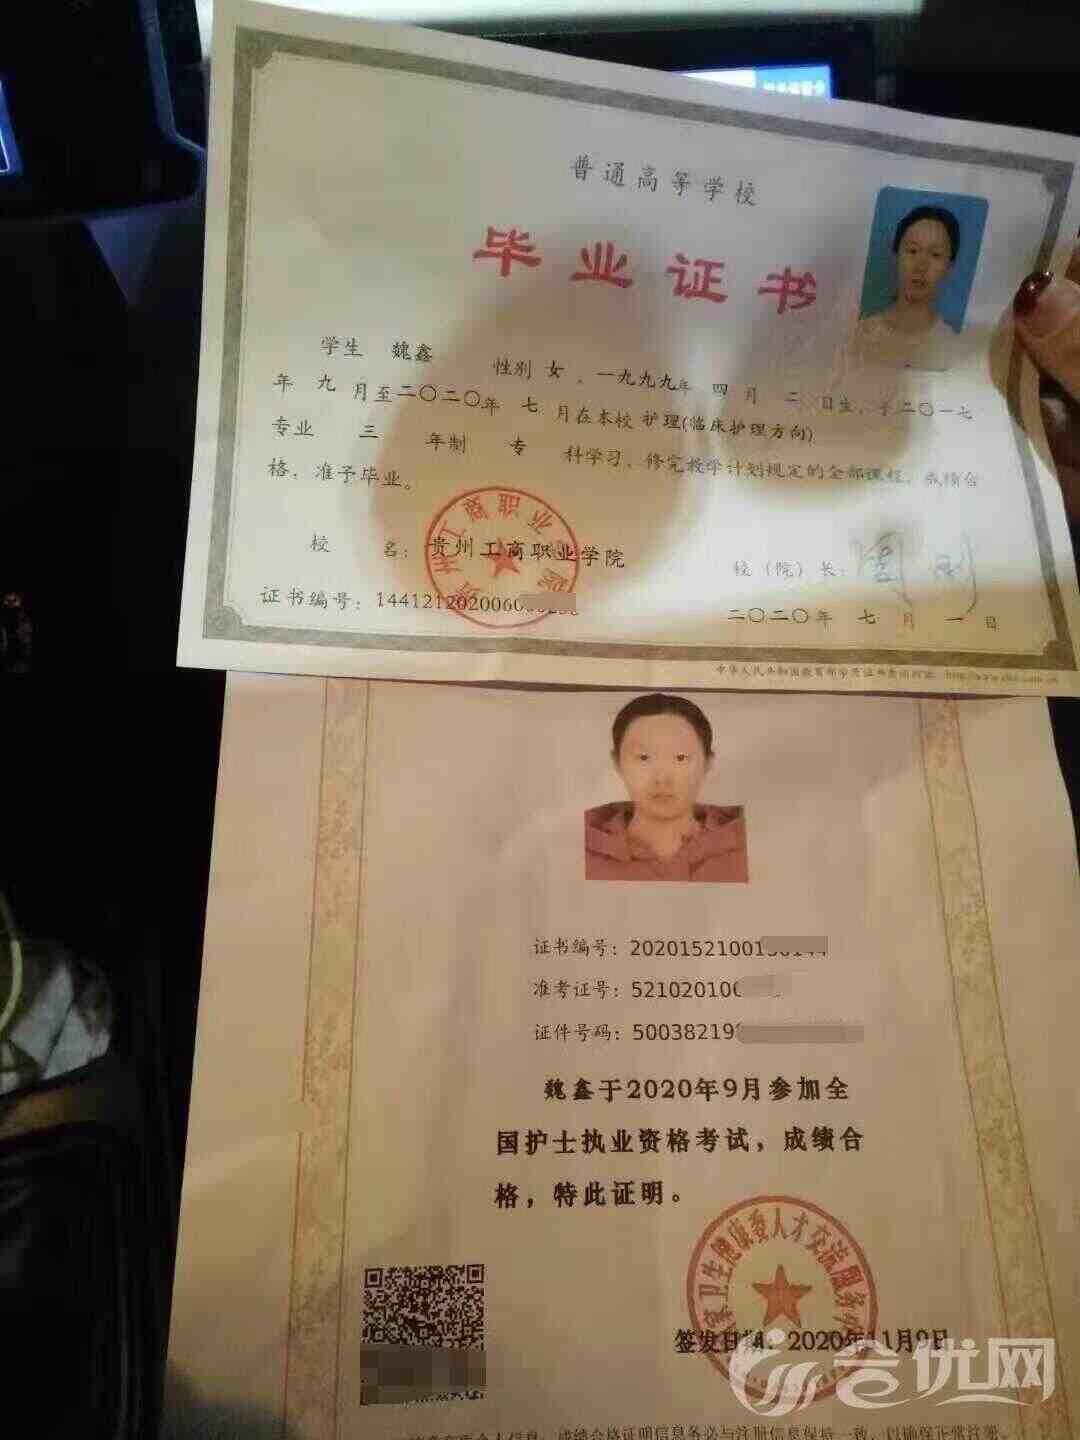 普通高等学校
毕业证书
学生 魏鑫 性别 女 ，一九九九年 四 月 二 日生，于二〇一七
年 九 月至二〇二〇年 七 月在本校 护理(临床护理方向)
专业 三 年制 专 科学习，修完教学计划规定的全部课程，成绩合
格，准予毕业。
校 名：贵州工商职业学院
校（院）长：
证书编号：144121202006
二〇二〇年 七 月 一 日
中华人民共和国教育部学历证书查询网址
证书编号：20201521001
准考证号：52102010
证件号码：50038219
魏鑫于2020年9月参加全
国护士执业资格考试，成绩合
格，特此证明。
国家卫生健康委人才交流服务中心
签发日期：2020年11月9日
会优网
成绩合格证明信息务必与注册信息保持一致，以确保正常注册